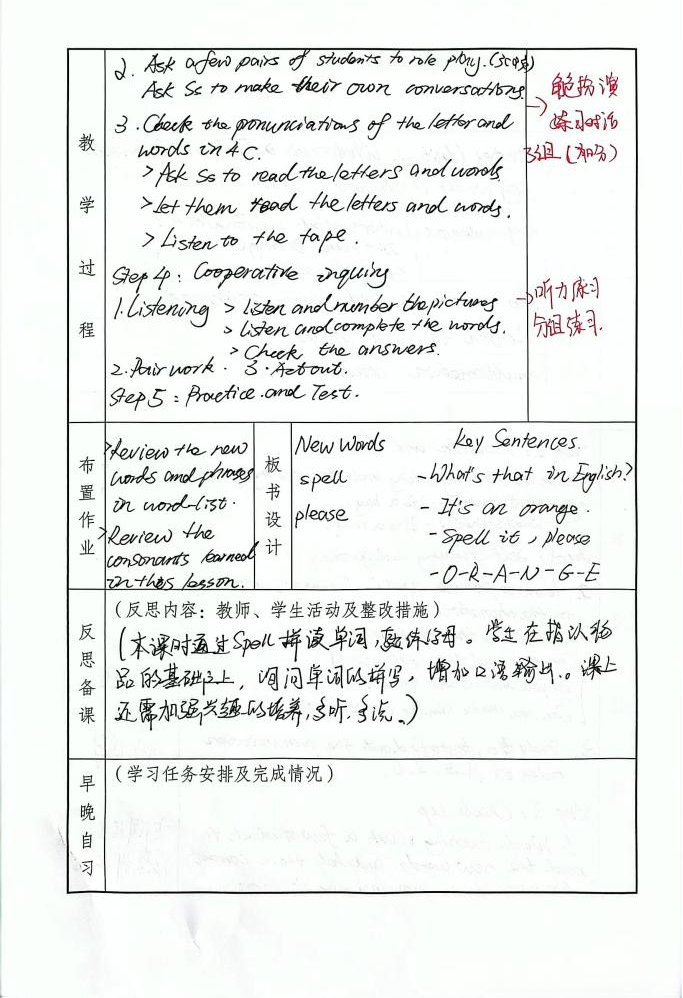 教学过程
2. Ask a few pairs of students to role play. (3组)
Ask Ss to make their own conversations.
3. Check the pronunciations of the letter and
words in 4C.
> Ask Ss to read the letters and words
> let them read the letters and words.
> Listen to the tape.
Step 4: Cooperative inquiry
1. Listening > listen and number the pictures
> listen and complete the words.
> Check the answers.
2. Pair work. 3. Act out.
Step 5: Practice and Test.
→ 角色扮演
练习对话
3组(加分)
→ 听力练习
分组练习.
布置作业
> Review the new
words and phrases
in word-list.
> Review the
consonants learned
in this lesson.
板书设计
New Words
spell
please
Key Sentences.
- What's that in English?
- It's an orange.
- Spell it, please
- O-R-A-N-G-E
反思备课
(反思内容:教师、学生活动及整改措施)
(本课时通过Spell拼读单词,字母。学生在指认物
品的基础之上,询问单词的拼写,增加口语输出。课上
还需加强兴趣的培养,多听.多说。)
早晚自习
(学习任务安排及完成情况)